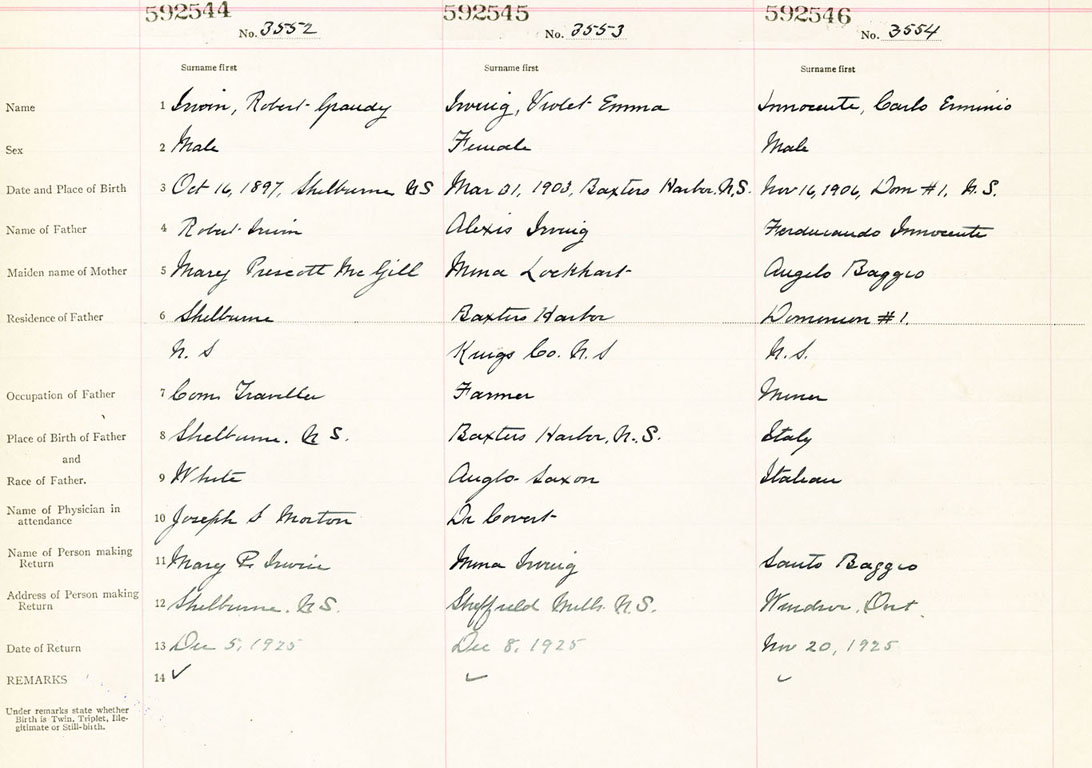 592544 592545 592546
No. 3552 No. 3553 No. 3554
Surname first Surname first Surname first
Name 1 Irwin, Robert Graudy Irving, Violet Emma Innocente, Carlo Erminio
Sex 2 Male Female Male
Date and Place of Birth 3 Oct 16, 1897, Shelburne NS Mar 01, 1903, Baxters Harbor. N.S. Nov 16, 1906, Dom #1, N.S.
Name of Father 4 Robert Irwin Alexis Irving Ferdinando Innocente
Maiden name of Mother 5 Mary Prescott McGill Mina Lockhart Angelo Baggio
Residence of Father 6 Shelburne Baxters Harbor Dominion #1.
N. S Kings Co. N. S N. S.
Occupation of Father 7 Com Traveller Farmer Miner
Place of Birth of Father 8 Shelburne. N S. Baxters Harbor, N. S. Italy
and
Race of Father. 9 White Anglo-Saxon Italian
Name of Physician in
attendance 10 Joseph S Morton Dr Covert
Name of Person making
Return 11 Mary P. Irwin Mina Irving Santo Baggio
Address of Person making
Return 12 Shelburne. N.S. Sheffield Mills N.S. Windsor, Ont.
Date of Return 13 Dec 5, 1925 Dec 8, 1925 Nov 20, 1925
REMARKS 14 ✓ ✓ ✓
Under remarks state whether
Birth is Twin, Triplet, Ille-
gitimate or Still-birth.